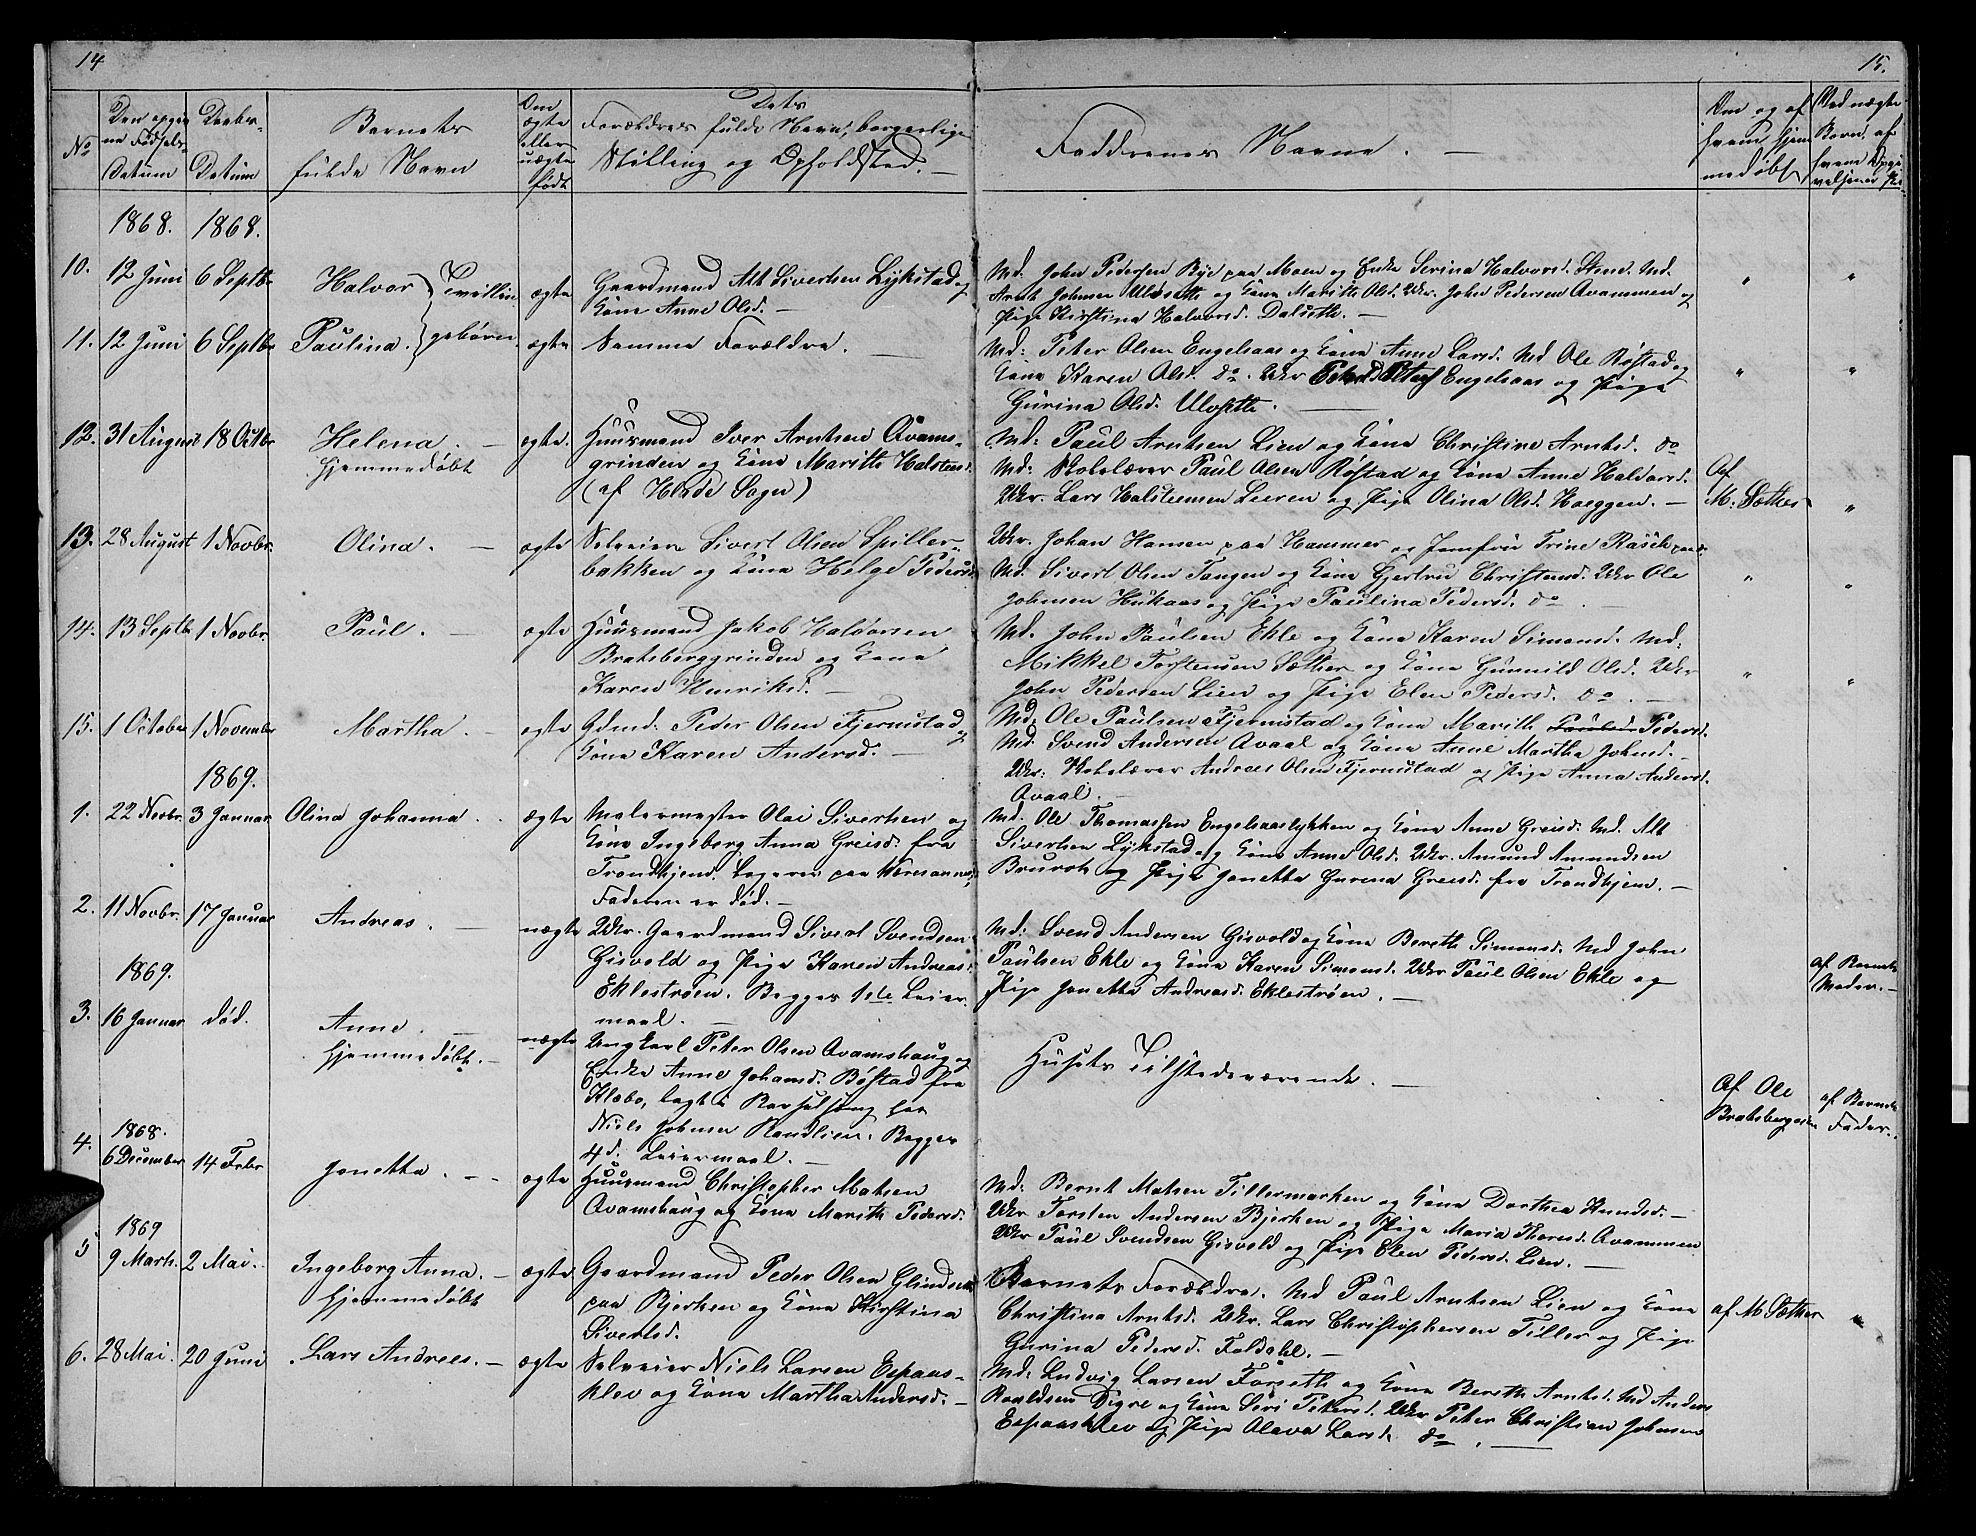 14
15.
No
Den opgiv-
ne Fødsels-
Datum
Daabs-
Datum
Barnets
fulde Navn
Om
ægte
eller
uægte
født
Dets
Forældres fulde Navn, borgerlige
Stilling og Opholdsted. —
Faddernes Navne. —
Om og af
hvem hjem-
medøbt
Ved uægte
Børn, af
hvem Opgi-
velserne
1868. 1868.
10. 12 Juni 6 Septbr Halvor } Tvillin ægte Gaardmand Alt Sivertsen Lykstad og
Kone Anne Olsd. —
Md. John Pedersen Bye paa Moen og Enke Serina Halvorsd. Stene. Md.
Arnt Johnsen Ulvseth og Kone Marith Olsd. Ukr. John Pedersen Qvammen og
Pige Kirstina Halvorsd. Dalseth. —
" "
11. 12 Juni 6 Septbr Paulina. } gebørn ægte Samme Forældre. —
Md: Peter Olsen Engelsaas og Kone Anne Larsd. Md Ole Røstad og
Kone Karen Olsd. do. Ukr Engelsaas og Pige
Gurina Olsd. Ulvseth. —
" "
12. 31 August 18 Octbr Helena. — ægte. Huusmand Iver Arntsen Qvams-
hjemmedøbt
grinden og Kone Marith Halstens.
(af Hegde Sogn)
Md: Paul Arntsen Lien og Kone Christine Arntsd. do
Md: Skolelærer Paul Olsen Røstad og Kone Anne Haldorsd.
Ukr. Lars Halstensen Lieren og Pige Olina Olsd. Hoeggen. —
Af
M. Sæther
"
13. 28 August 1 Novbr. Olina. — ægte Selveier Sivert Olsen Spiller-
bakken og Kone Helge Pedersd.
Ukr. Johan Hansen paa Hammer og Jomfru Trine Rasch paa do
Md. Sivert Olsen Tangen og Kone Gjertru Christensd. Ukr Ole
Johnsen Hukaas og Pige Paulina Pedersd. do. —
" "
14. 13 Septb. 1 Novbr. Paul. — ægte Huusmand Jakob Halvorsen
Bratsberggrinden og Kone
Karen Henriksd. —
Md. John Paulsen Ekle og Kone Karen Simonsd. Md:
Mikkel Torstensen Sæther og Kone Gunnild Olsd. Ukr
John Pedersen Lien og Pige Elen Pedersd. do. —
" "
15. 1 October 1 November Martha. — ægte Gdmd. Peder Olsen Fjermstad og
Kone Karen Andersd. —
Md: Ole Paulsen Fjermstad og Kone Marith Pedersd.
Md. Svend Andersen Qvaal og Kone Anne Martha Johnsd.
Ukr: Skolelærer Andreas Olsen Fjermstad og Pige Anna Andersd.
Qvaal. —
1869.
1. 22 Novbr. 3 Januar Olina Johanna. ægte Malermester Olai Sivertsen og
Kone Ingeborg Anna Greisd. fra
Trondhjem. Logerer paa Næresannet;
Faderen er død. —
Md. Ole Thomassen Engelsaaslykken og Kone Anne Greisd. Md. Alt
Sivertsen Lykstad og Kone Anne Olsd. Ukr. Amund Amundsen
Bruroh og Pige Janetta Gurina Greisd. fra Trondhjem. —
2. 11 Novbr. 17 Januar Andreas. — uægte Ukr. Gaardmand Sivert Svendsen
Gisvold og Pige Karen Andreas.
Eklestrøen. Begges 1ste Leier-
maal. —
Md: Svend Andersen Gisvold og Kone Bereth Simonsd. Md John
Paulsen Ekle og Kone Karen Simonsd. Ukr Paul Olsen Ekle og
Pige Janetta Andreasd. Eklestrøen. —
af Barnets
Moder. —
1869.
3. 16 Januar død. Anne. — uægte Ungkarl Peter Olsen Qvamshaug og
hjemmedøbt. —
Enke Anne Johansd. Bøstad fra
Klæbo, lagt i Barselseng hos
Niels Johnsen Randlien. Begges
4d. Leiermaal. —
Husets Tilstedeværende. —
Af Ole
Bratsbergeslen
af Barnets
Fader.
1868.
4. 6 December 14 Febr Janetta. — ægte Huusmand Christopher Matsen
Qvamshaug og Kone Marith Pedersd.
Md: Bernt Matsen Tillermarken og Kone Dorthea Knudsd. —
Ukr Torsten Andersen Bjerken og Pige Maria Thoresd. Qvammen
Ukr Paul Svendsen Gisvold og Pige Elen Pedersd. Lien. —
1869
5 9 Marts. 2 Mai. Ingeborg Anna. — ægte Gaardmand Peder Olsen Glindseth
hjemmedøbt
paa Bjerken og Kone Kirstina
Sivertsd.
Barnets Forældre. Md Paul Arntsen Lien og Kone
Christina Arntsd. Ukr. Lars Christophersen Tiller og Pige
Gurina Pedersd. Foldahl. —
af M. Sæther
"
6. 28 Mai. 20 Juni Lars Andreas. — ægte Selveier Niels Larsen Espaas-
klev og Kone Martha Andersd. —
Md: Ludvig Larsen Forseth og Kone Bereth Arntsd. Md Anders
Roaldsen Digre og Kone Siri Petersd. Ukr Peter Christian Johnsen
Espaasklev og Pige Olava Larsd. do. —